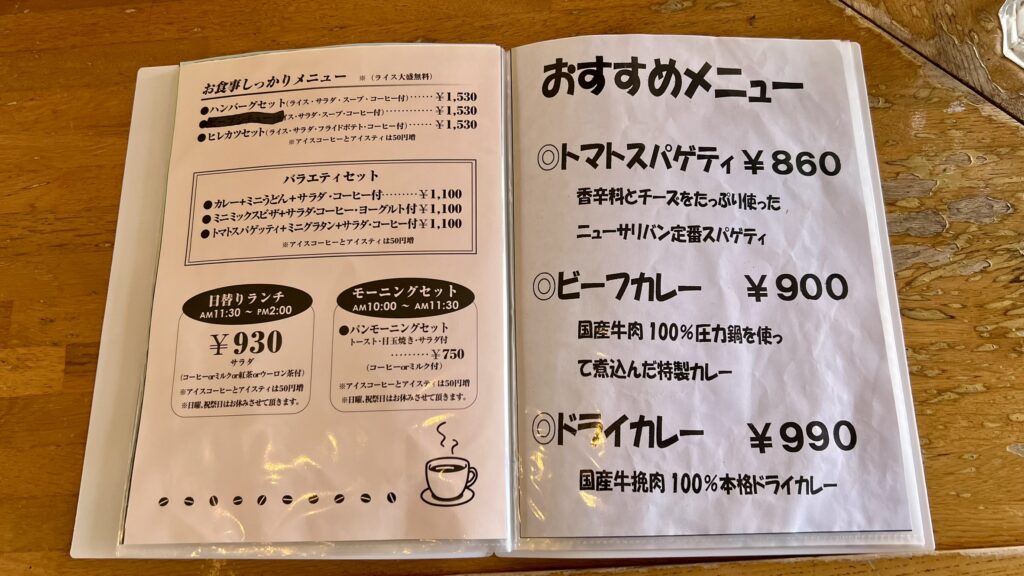 お食事しっかりメニュー ※(ライス大盛無料)
●ハンバーグセット(ライス・サラダ・スープ・コーヒー付)……¥1,530
イス・サラダ・スープ・コーヒー付)……¥1,530
●ヒレカツセット(ライス・サラダ・フライドポテト・コーヒー付)……¥1,530
※アイスコーヒーとアイスティは50円増
バラエティセット
●カレー+ミニうどん+サラダ・コーヒー付………¥1,100
●ミニミックスピザ+サラダ・コーヒー・ヨーグルト付¥1,100
●トマトスパゲッティ+ミニグラタン+サラダ・コーヒー付¥1,100
※アイスコーヒーとアイスティは50円増
日替りランチ
AM11:30 ~ PM2:00
¥930
サラダ
(コーヒーorミルクor紅茶orウーロン茶付)
※アイスコーヒーとアイスティは50円増
※日曜、祝祭日はお休みさせて頂きます。
モーニングセット
AM10:00 ~ AM11:30
●パンモーニングセット
トースト・目玉焼き・サラダ付
………¥750
(コーヒーorミルク付)
※アイスコーヒーとアイスティは50円増
※日曜、祝祭日はお休みさせて頂きます。
おすすめメニュー
◎トマトスパゲティ¥860
香辛料とチーズをたっぷり使った
ニューサリバン定番スパゲティ
◎ビーフカレー ¥900
国産牛肉100%圧力鍋を使っ
て煮込んだ特製カレー
◎ドライカレー ¥990
国産牛挽肉100%本格ドライカレー